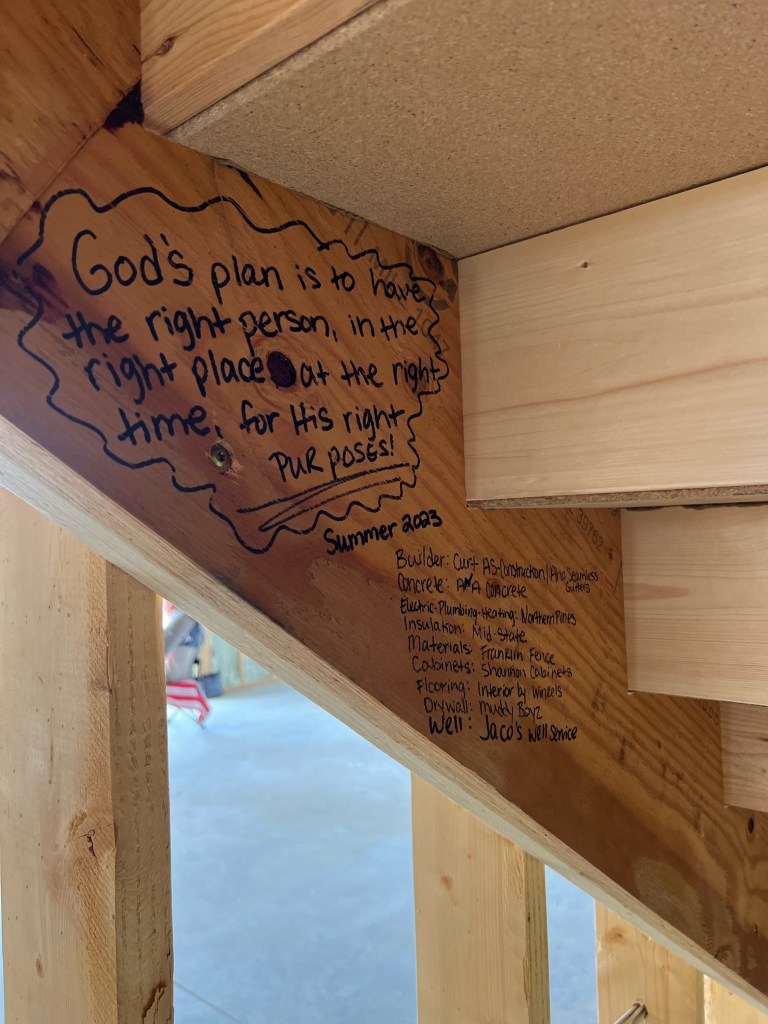 God's plan is to have
the right person, in the
right place at the right
time, for His right
PURPOSES!
Summer 2023
39762
Builder: Curt AS-Construction/ Seamless
Gutters
Concrete: A A Concrete
Electric-Plumbing-Heating: Northern Pines
Insulation: Mid-State
Materials: Franklin Fence
Cabinets: Shannon Cabinets
Flooring: Interior by Winzels
Drywall: Muddy Boyz
Well: Jaco's Well Service